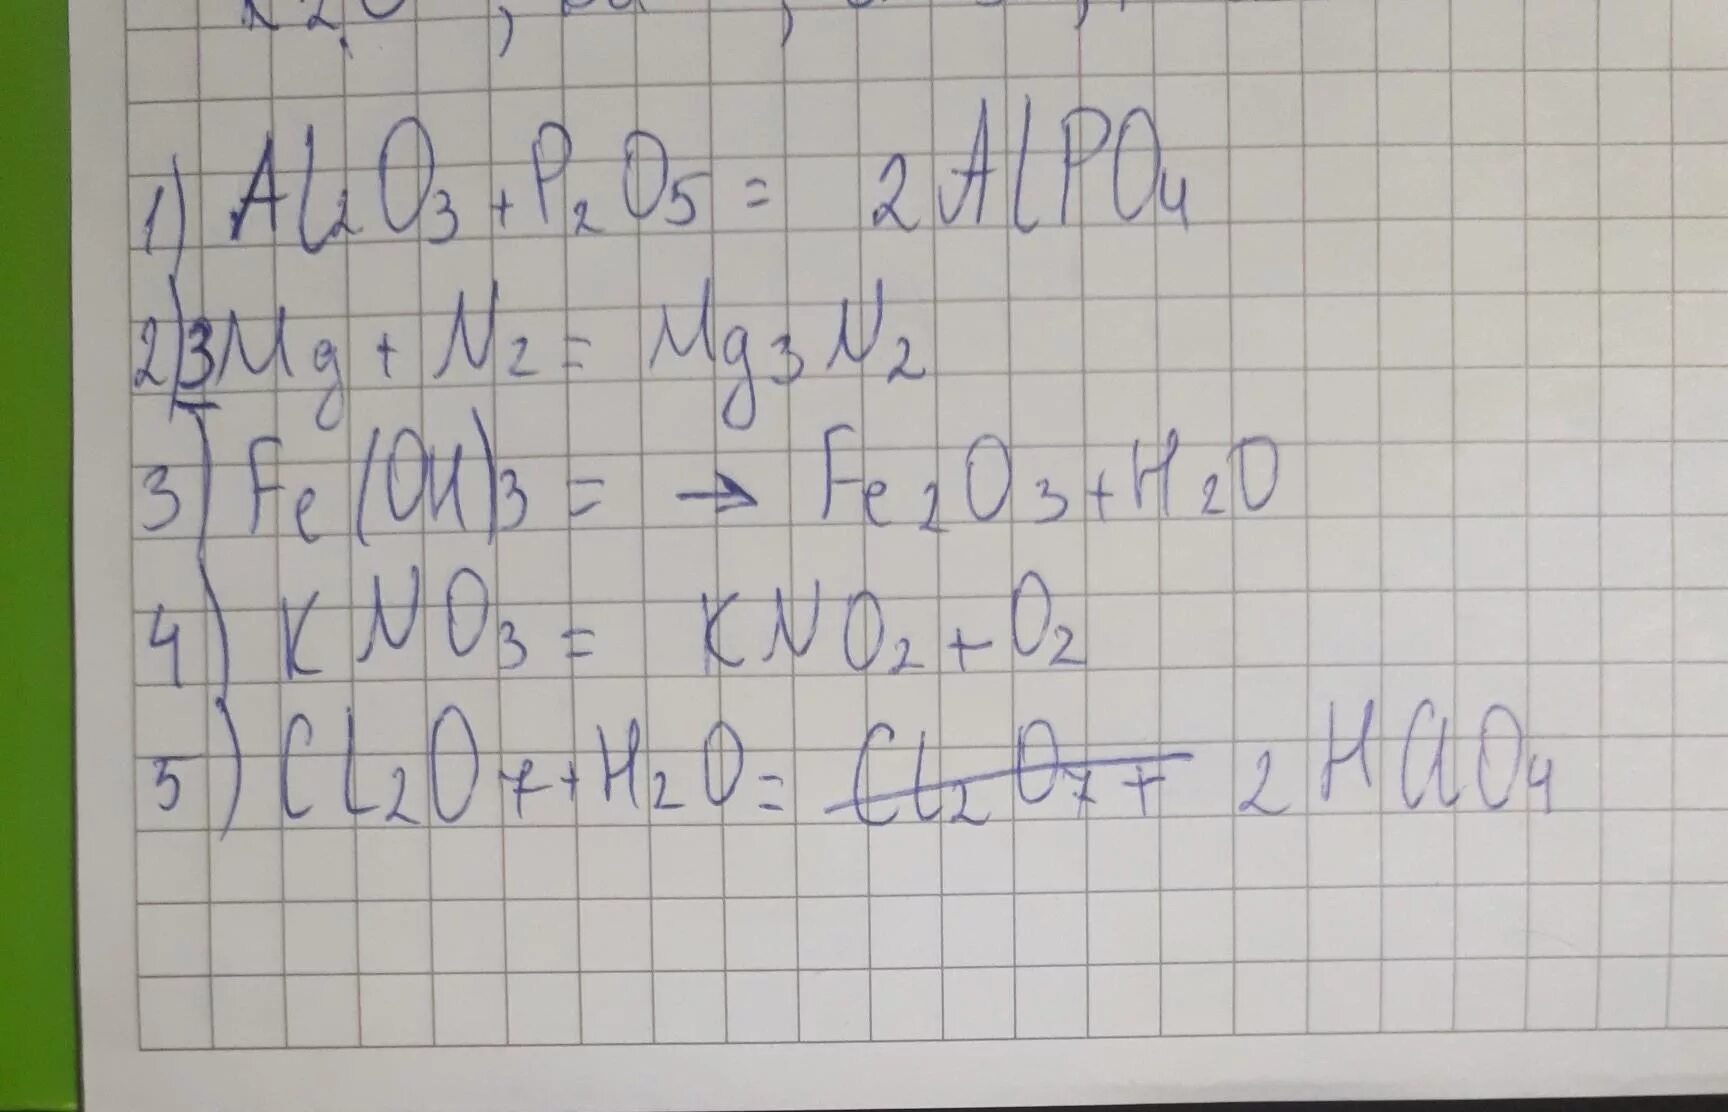 1) Al2O3 + P2O5 = 2AlPO4
2) 3Mg + N2 = Mg3N2
3) Fe(OH)3 = → Fe2O3 + H2O
4) KNO3 = KNO2 + O2
5) Cl2O7 + H2O = Cl2O7 + 2HClO4